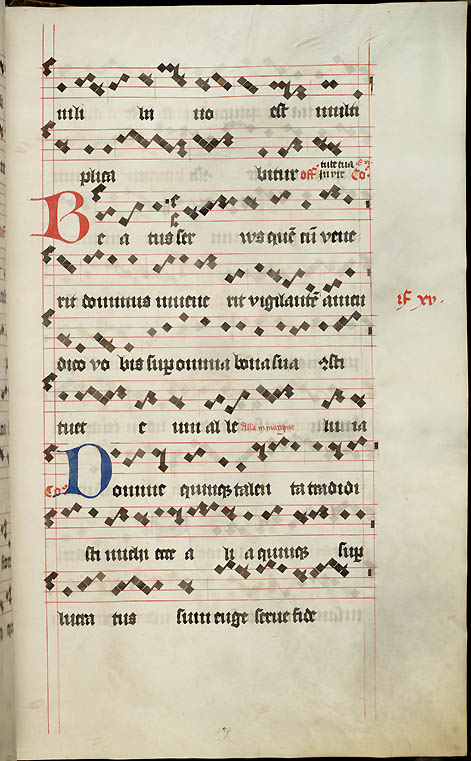 nili In no est multi
plica bitur off tute tua in vir Co
Be a tus ser vus quē cū vene
rit dominus invene rit vigilantē amen
dico vo bis sup omnia bona sua
tuet e um al le Alla in martyre lu ia
Co Domine quinqȝ talen ta tradidi
sti michi ecce a li a quinqȝ sup
lucra tus sum euge serve fide